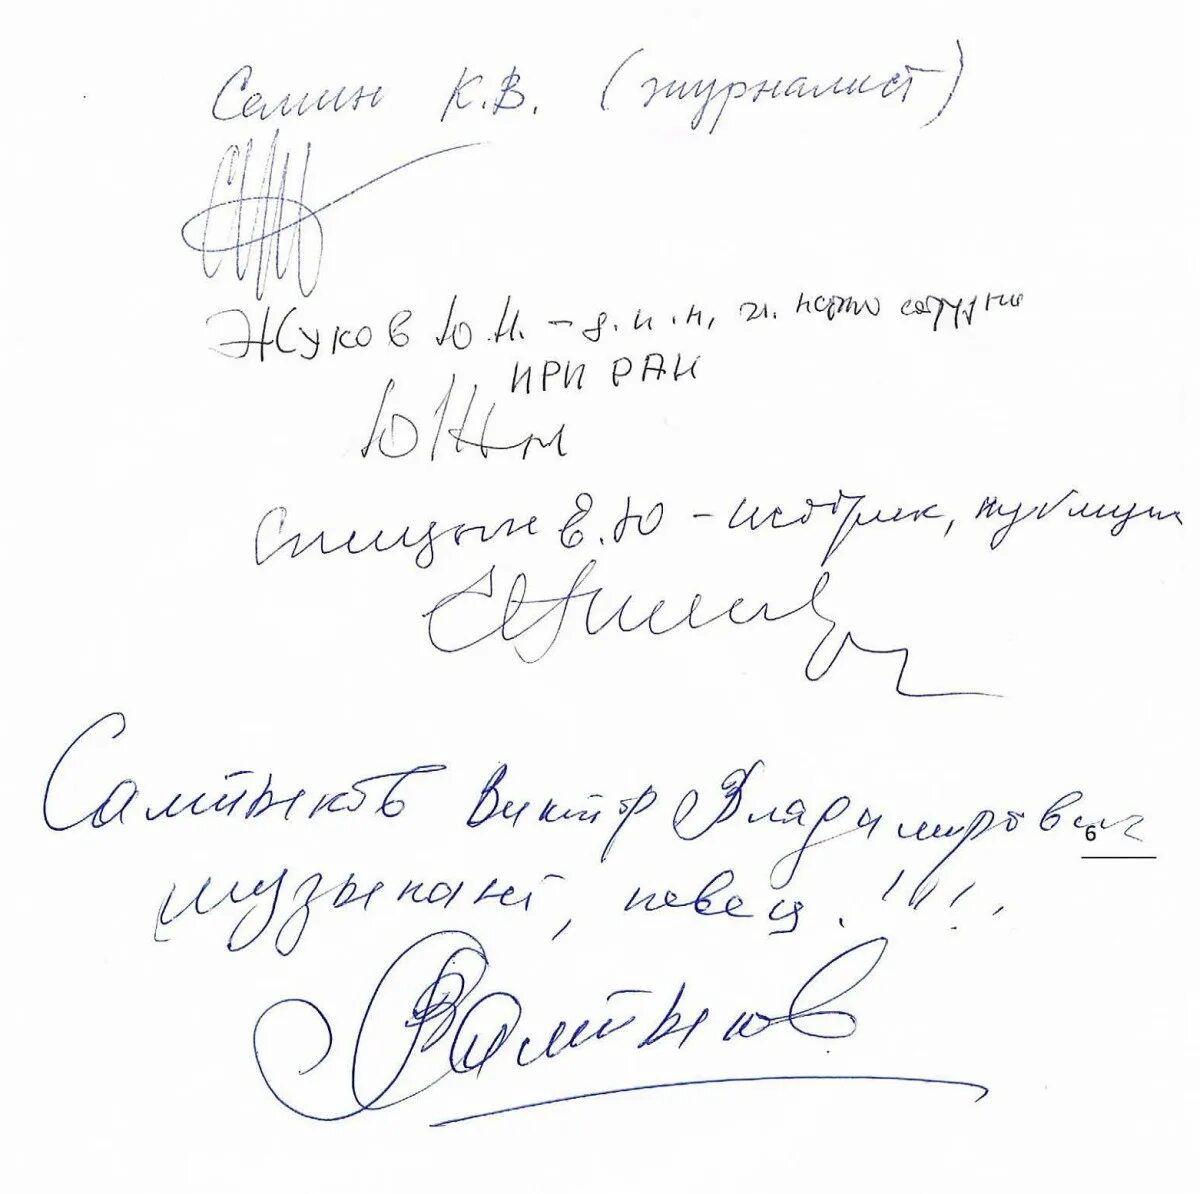 Семин К.В. (журналист)
Жуков Ю.Н. – д.и.н, гл. научн сотрудник
ИРИ РАН
Спицын Е.Ю – историк, публицист
Салтыков Виктор Владимирович
6
музыкант, певец.!!!!
Салтыков